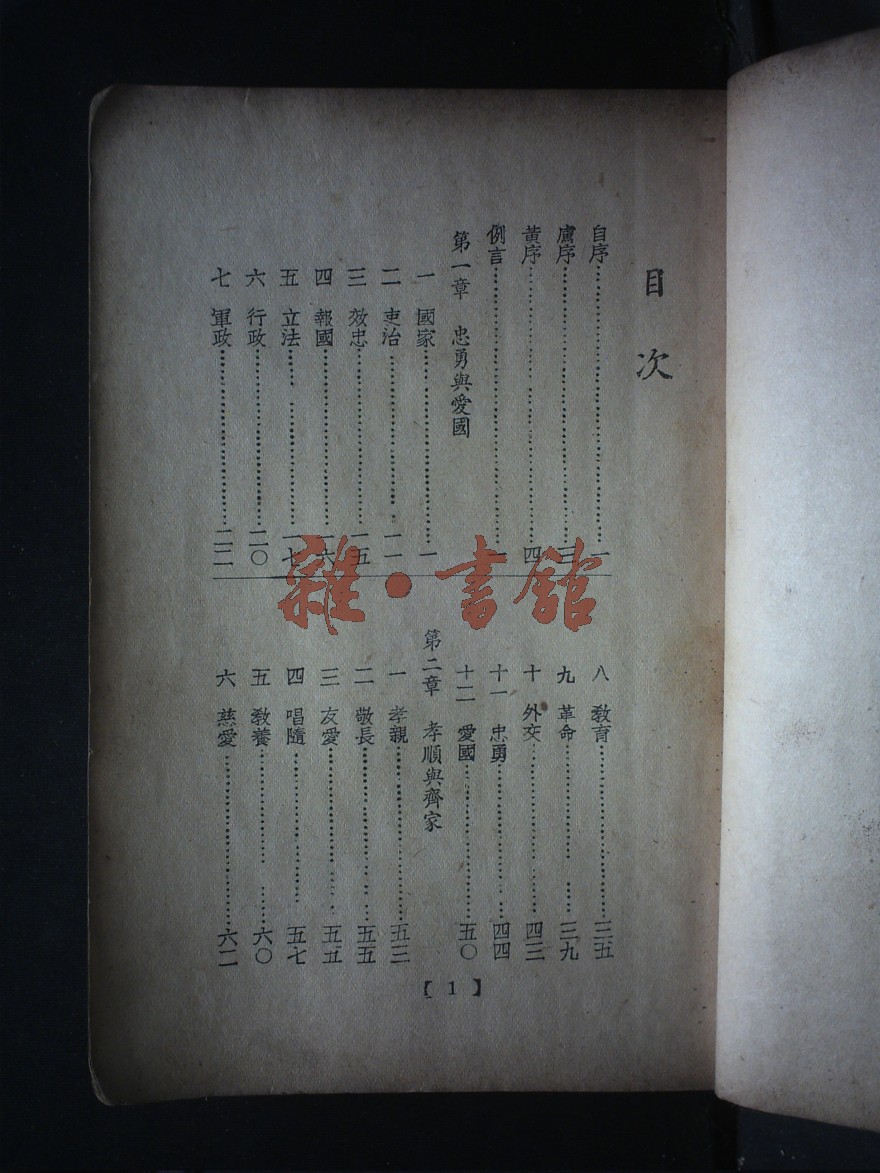 目次
自序……一
盧序……三
黃序……四
例言……
第一章　忠勇與愛國
一　國家……一
二　吏治……一一
三　效忠……一五
四　報國……一六
五　立法……一七
六　行政……二〇
七　軍政……二二
八　教育……三五
九　革命……三九
十　外交……四三
十一　忠勇……四四
十二　愛國……五〇
第二章　孝順與齊家
一　孝親……五三
二　敬長……五五
三　友愛……五五
四　唱隨……五七
五　教養……六〇
六　慈愛……六二
【1】
雜·書館